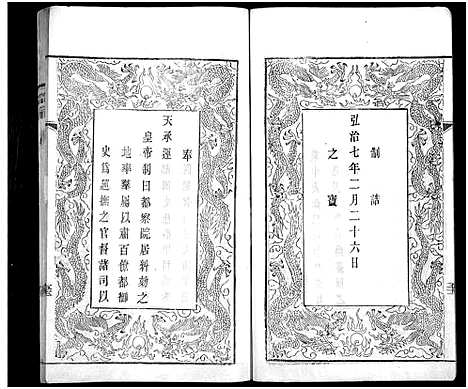 制誥
弘治七年二月二十六日
之寶
奉
天承運
皇帝制曰都察院居糾劾之
地奉羣屬以肅百僚都御
史爲巡撫之官督諸司以